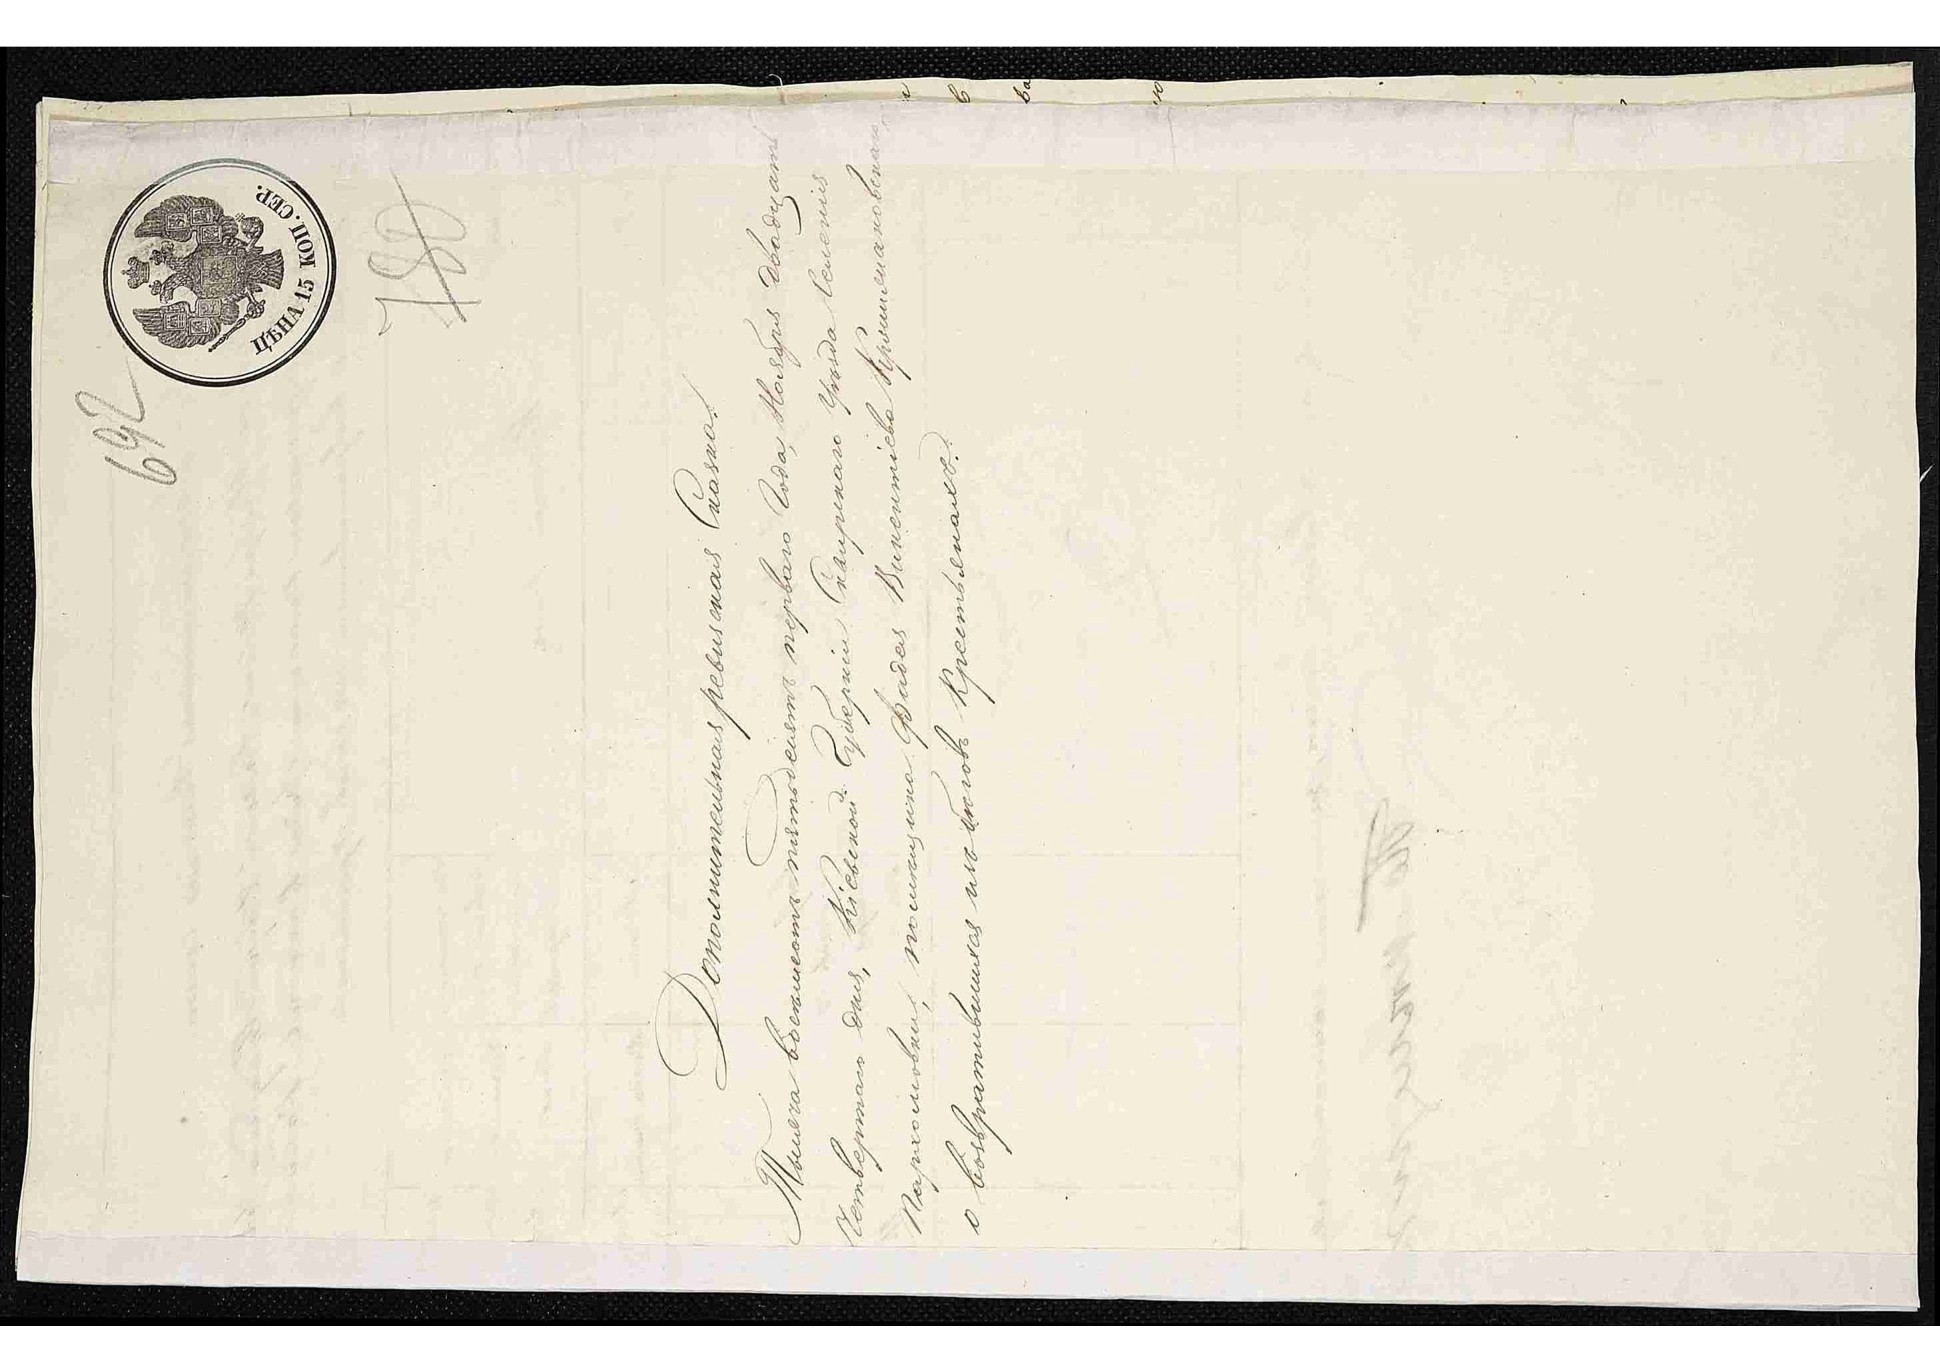 692
ЦѢНА 15 КОП. СЕР.
780
Дополнительная ревизская Сказка.
Тысяча восемьсотъ пятьдесятъ перваго Года, Ноября двадцать
четвертаго дня, Кіевской Губерніи Сквирского Уѣзда селенія
Пархомовки, помещика Фадея Викентіева
о возвратившихся изъ бѣговъ Крестьянахъ.